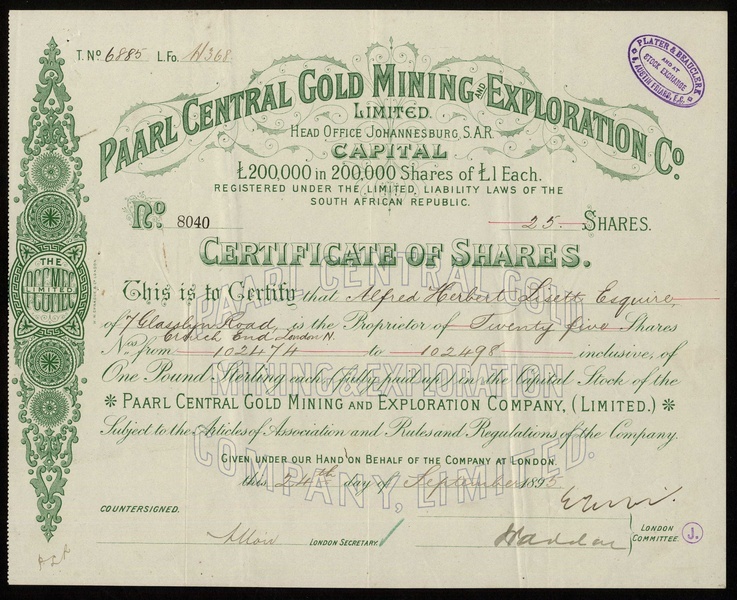 T. No 6885 L. Fo. H368
PLATER & BEAUCLERK
AND AT
STOCK EXCHANGE
AUSTIN FRIARS, E.C.
PAARL CENTRAL GOLD MINING AND EXPLORATION Co.
LIMITED.
HEAD OFFICE JOHANNESBURG, S.A.R.
CAPITAL
£200,000 in 200,000 Shares of £1 Each.
REGISTERED UNDER THE LIMITED LIABILITY LAWS OF THE
SOUTH AFRICAN REPUBLIC.
No. 8040 25 SHARES.
CERTIFICATE OF SHARES.
THE
PCGMEC
LIMITED
This is to Certify that Alfred Herbert Lisett Esquire
of 7 Glasslyn Road, is the Proprietor of Twenty five Shares
Crouch End London N.
Nos. from 102474 to 102498 inclusive, of
One Pound Sterling each (fully paid up) in the Capital Stock of the
PAARL CENTRAL GOLD MINING AND EXPLORATION COMPANY, (LIMITED.)
Subject to the Articles of Association and Rules and Regulations of the Company.
PAARL CENTRAL GOLD
MINING & EXPLORATION
COMPANY, LIMITED.
GIVEN UNDER OUR HAND ON BEHALF OF THE COMPANY AT LONDON.
this 24th day of September 1895
COUNTERSIGNED.
LONDON SECRETARY.
LONDON
COMMITTEE.
J.